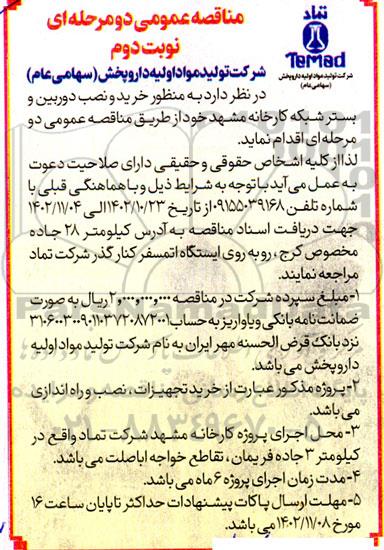 مناقصه عمومی دو مرحله ای
نوبت دوم
تماد
Temad
شرکت تولید مواد اولیه داروپخش
(سهامی عام)
شرکت تولید مواد اولیه داروپخش (سهامی عام)
در نظر دارد به منظور خرید و نصب دوربین و
بستر شبکه کارخانه مشهد خود از طریق مناقصه عمومی دو
مرحله ای اقدام نماید.
لذا از کلیه اشخاص حقوقی و حقیقی دارای صلاحیت دعوت
به عمل می آید با توجه به شرایط ذیل و با هماهنگی قبلی با
شماره تلفن ۰۹۱۵۵۰۳۹۱۶۸ از تاریخ ۱۴۰۲/۱۰/۲۳ الی ۱۴۰۲/۱۱/۰۴
جهت دریافت اسناد مناقصه به آدرس کیلومتر ۲۸ جاده
مخصوص کرج ، رو به روی ایستگاه اتمسفر کنار گذر شرکت تماد
مراجعه نمایند.
۱- مبلغ سپرده شرکت در مناقصه ۲,۰۰۰,۰۰۰,۰۰۰ ریال به صورت
ضمانت نامه بانکی و یا واریز به حساب
نزد بانک قرض الحسنه مهر ایران به نام شرکت تولید مواد اولیه
داروپخش می باشد.
۲- پروژه مذکور عبارت از خرید تجهیزات ، نصب و راه اندازی
می باشد.
۳- محل اجرای پروژه کارخانه مشهد شرکت تماد واقع در
کیلومتر ۳ جاده فریمان ، تقاطع خواجه اباصلت می باشد.
۴- مدت زمان اجرای پروژه ۶ ماه می باشد.
۵- مهلت ارسال پاکات پیشنهادات حداکثر تا پایان ساعت ۱۶
مورخ ۱۴۰۲/۱۱/۰۸ می باشد.